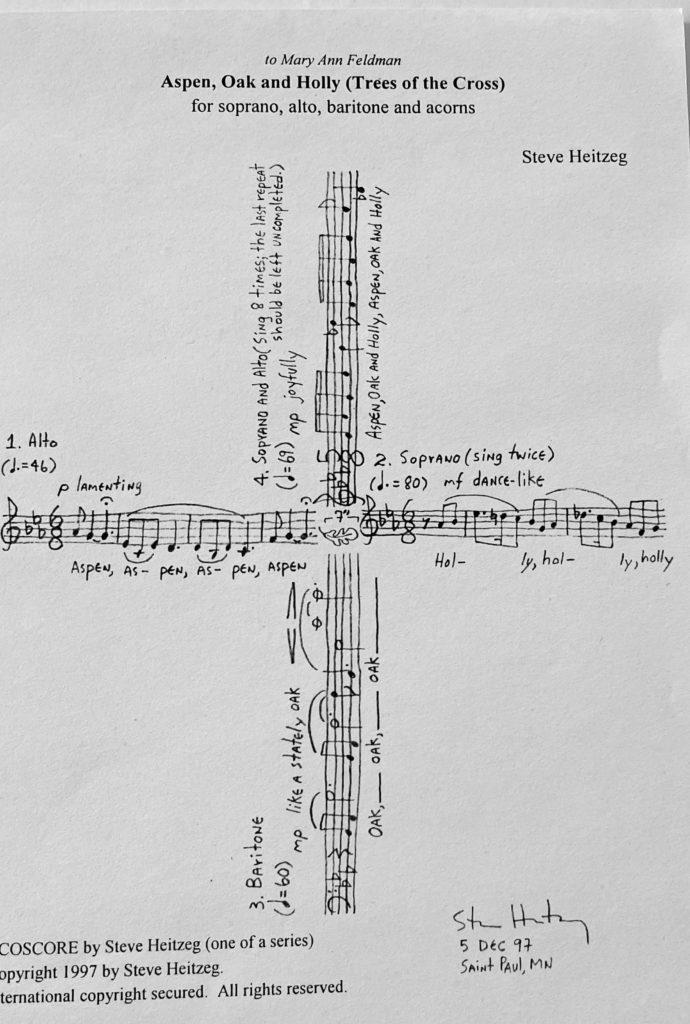 to Mary Ann Feldman
Aspen, Oak and Holly (Trees of the Cross)
for soprano, alto, baritone and acorns
Steve Heitzeg
4. SOPRANO AND Alto (SiNg 8 times; the last REPEAT
should be left UNcompleted.)
(♩=69) mp joyfully
ASPEN, OAK AND Holly, ASPEN, OAK AND Holly
1. Alto
(♩.=46)
p lAMENtiNg
6
8
ASPEN, AS- PEN, AS- PEN, ASPEN
7"
2. SopRANO (siNg twice)
(♩.=80) mf dANce-like
6
8
Hol- ly, hol- ly, holly
3. BARitONE
(♩=60) mp like A StAtely OAK
OAK, OAK, OAK
COSCORE by Steve Heitzeg (one of a series)
opyright 1997 by Steve Heitzeg.
ternational copyright secured. All rights reserved.
5 DEC 97
SAiNt PAUl, MN